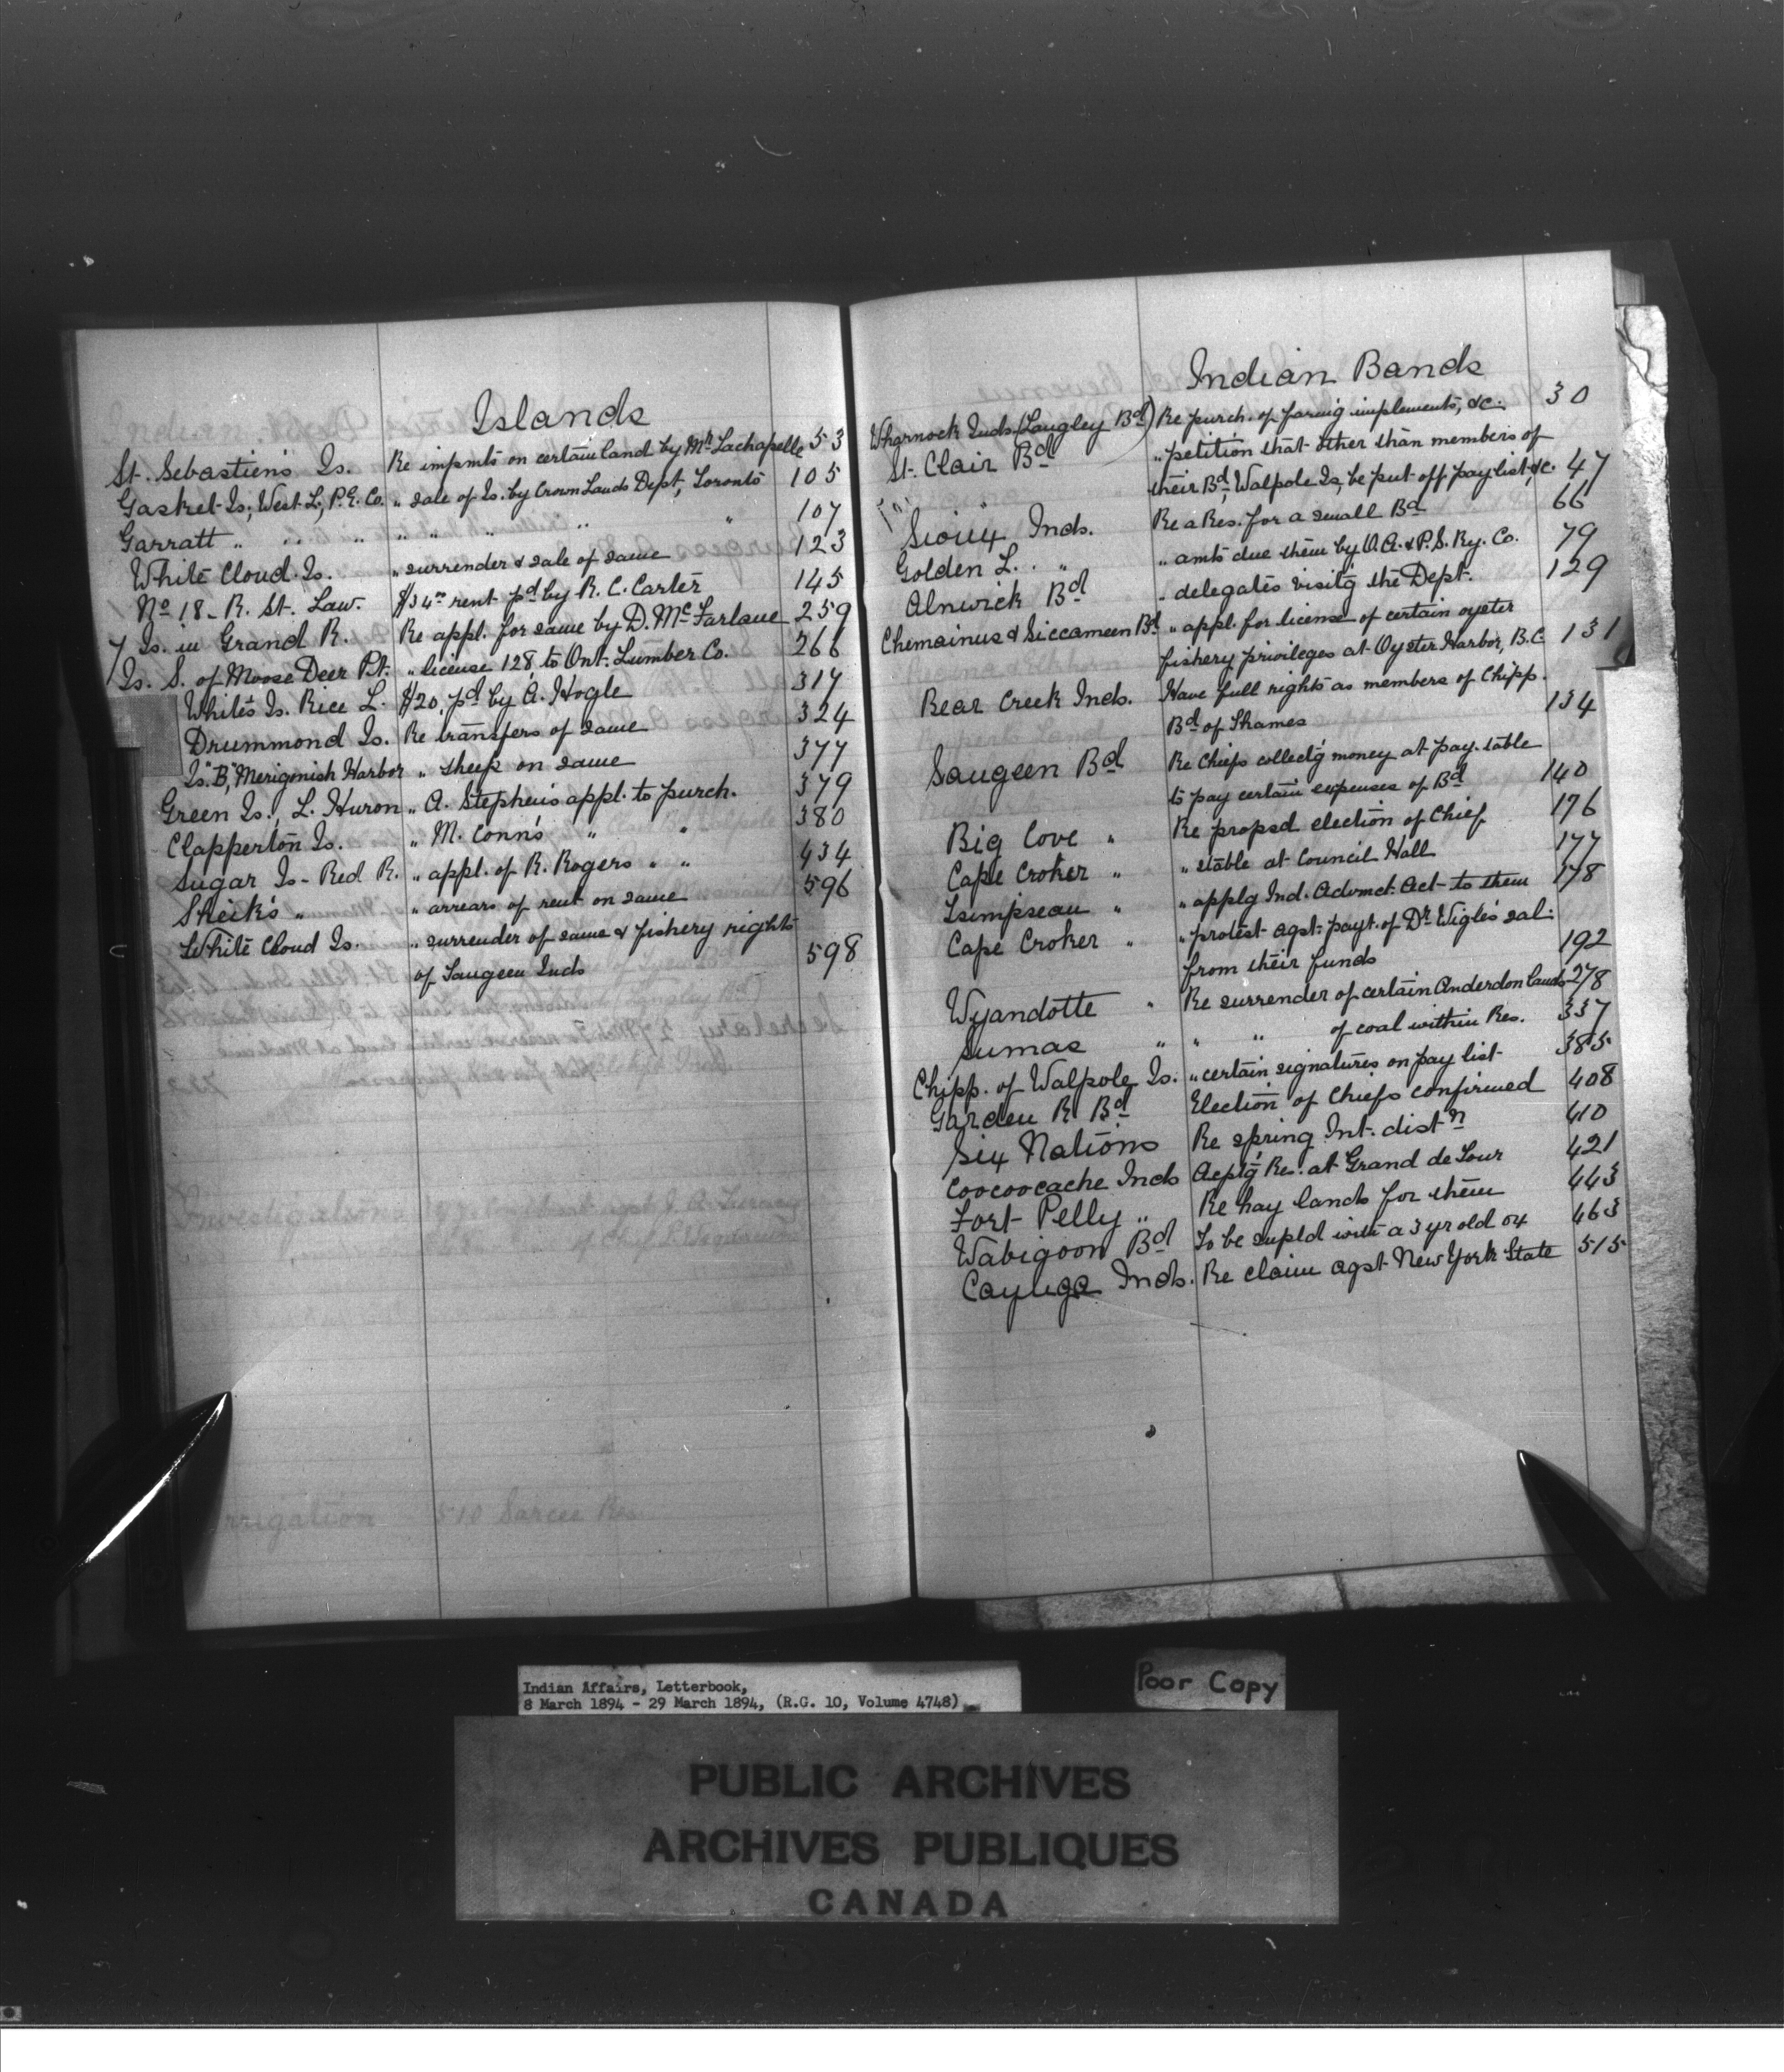 Islands
St. Sebastien's Is. Re impmts on certain land by Mr Lachapelle 53
Gasket Is, West L, P.E. Co. " sale of Is. by Crown Lands Dept, Toronto 105
Garratt " " " " " " " " 107
White Cloud Is. " surrender & sale of same 123
No 18 - R. St. Law. $34 rent pd by R. C. Carter 145
7 Is. in Grand R. Re appl. for same by D. McFarlane 259
Is. S. of Moose Deer Pt. " license 128, to Ont. Lumber Co. 266
White's Is. Rice L. $20, pd by A. Hogle 317
Drummond Is. Re transfers of same 324
Is. "B", Merigomish Harbor " sheep on same 377
Green Is., L. Huron " A. Stephen's appl. to purch. 379
Clapperton Is. " M. Conn's " " 380
Sugar Is - Red R. " appl. of R. Rogers " " 434
Sheik's " " arrears of rent on same 596
White Cloud Is. " surrender of same & fishery rights
of Saugeen Inds 598
Irrigation 510 Sarcee Res
Indian Bands
Wharnock Inds (Langley Bd) Re purch. of farmig implements, &c. 30
St. Clair Bd " petition that other than members of
their Bd, Walpole Is, be put off pay list, &c. 47
Sioux Inds. Re a Res. for a small Bd 66
Golden L. " " amts due them by O. A. & P. S. Ry. Co. 79
Alnwick Bd " delegates visitg the Dept. 129
Chemainus & Siccameen Bd " appl. for license of certain oyster
fishery privileges at Oyster Harbor, B.C. 131
Bear Creek Inds. Have full rights as members of Chipp.
Bd of Thames 134
Saugeen Bd Re Chiefs collectg money at pay-table
to pay certain expenses of Bd 140
Big Cove " Re propsd election of Chief 176
Cape Croker " " stable at Council Hall 177
Tsimpsean " " applg Ind. Advmct. Act to them 178
Cape Croker " " protest agst payt. of Dr Wigle's sal:
from their funds 192
Wyandotte " Re surrender of certain Anderdon lands 278
Sumas " " " of coal within Res. 337
Chipp. of Walpole Is. " certain signatures on pay list 385
Garden R. Bd Election of Chiefs confirmed 408
Six Nations Re spring Int. distn 410
Coocoocache Inds Acptg Res. at Grand de Tour 421
Fort Pelly " Re hay lands for them 443
Wabigoon Bd To be supld with a 3 yr old ox 463
Cayuga Inds. Re claim agst New York State 515
Indian Affairs, Letterbook,
8 March 1894 - 29 March 1894, (R.G. 10, Volume 4748)
Poor Copy
PUBLIC ARCHIVES
ARCHIVES PUBLIQUES
CANADA